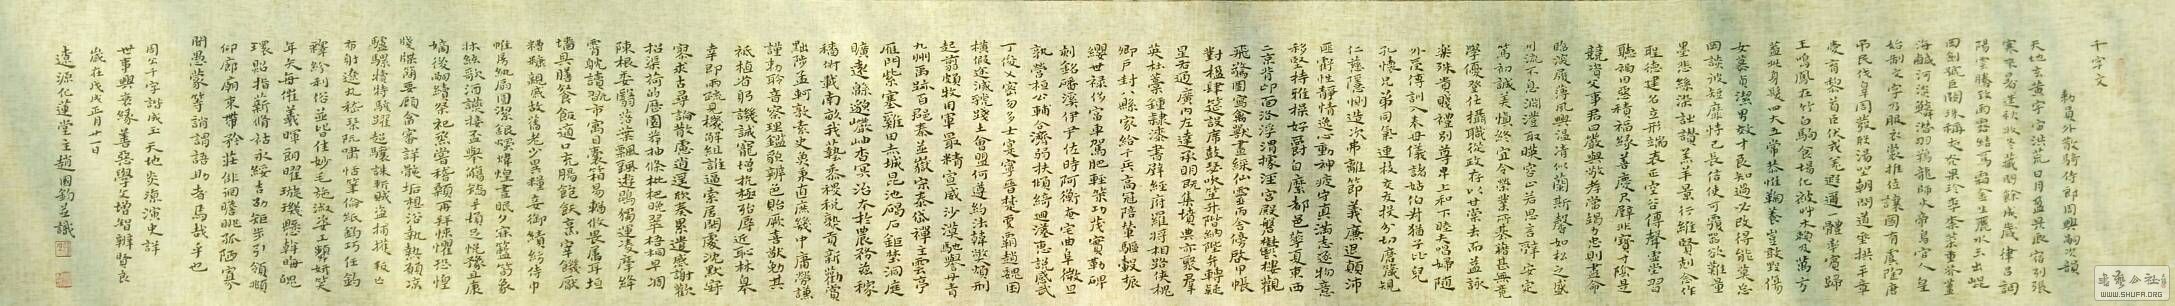 千字文
勅員外散騎侍郎周興嗣次韻
天地玄黃宇宙洪荒日月盈昃辰宿列張
寒來暑往秋收冬藏閏餘成歲律呂調
陽雲騰致雨露結為霜金生麗水玉出崐
岡劍號巨闕珠稱夜光果珍李柰菜重芥薑
海鹹河淡鱗潛羽翔龍師火帝鳥官人皇
始制文字乃服衣裳推位讓國有虞陶唐
弔民伐罪周發殷湯坐朝問道垂拱平章
愛育黎首臣伏戎羌遐邇一體率賓歸
王鳴鳳在竹白駒食場化被草木賴及萬方
蓋此身髮四大五常恭惟鞠養豈敢毀傷
女慕貞潔男效才良知過必改得能莫忘
罔談彼短靡恃己長信使可覆器欲難量
墨悲絲染詩讚羔羊景行維賢剋念作
聖德建名立形端表正空谷傳聲虛堂習
聽禍因惡積福緣善慶尺璧非寶寸陰是
競資父事君曰嚴與敬孝當竭力忠則盡命
臨深履薄夙興溫凊似蘭斯馨如松之盛
川流不息淵澄取映容止若思言辭安定
篤初誠美慎終宜令榮業所基籍甚無竟
學優登仕攝職從政存以甘棠去而益詠
樂殊貴賤禮別尊卑上和下睦夫唱婦隨
外受傅訓入奉母儀諸姑伯叔猶子比兒
孔懷兄弟同氣連枝交友投分切磨箴規
仁慈隱惻造次弗離節義廉退顛沛
匪虧性靜情逸心動神疲守真志滿逐物意
移堅持雅操好爵自縻都邑華夏東西
二京背邙面洛浮渭據涇宮殿盤鬱樓觀
飛驚圖寫禽獸畫綵仙靈丙舍傍啟甲帳
對楹肆筵設席鼓瑟吹笙升階納陛弁轉疑
星右通廣內左達承明既集墳典亦聚群
英杜稾鍾隸漆書壁經府羅將相路俠槐
卿戶封八縣家給千兵高冠陪輦驅轂振
纓世祿侈富車駕肥輕策功茂實勒碑
刻銘磻溪伊尹佐時阿衡奄宅曲阜微旦
孰營桓公輔合濟弱扶傾綺迴漢惠說感武
丁俊乂密勿多士寔寧晉楚更霸趙魏困
橫假途滅虢踐土會盟何遵約法韓弊煩刑
起翦頗牧用軍最精宣威沙漠馳譽丹青
九州禹跡百郡秦并嶽宗泰岱禪主云亭
雁門紫塞雞田赤城昆池碣石鉅野洞庭
曠遠緜邈巖岫杳冥治本於農務茲稼
穡俶載南畝我藝黍稷稅熟貢新勸賞
黜陟孟軻敦素史魚秉直庶幾中庸勞謙
謹勅聆音察理鑑貌辨色貽厥嘉猷勉其
祗植省躬譏誡寵增抗極殆辱近恥林皋
幸即兩疏見機解組誰逼索居閒處沉默寂
寥求古尋論散慮逍遙欣奏累遣慼謝歡
招渠荷的歷園莽抽條枇杷晚翠梧桐早凋
陳根委翳落葉飄颻遊鵾獨運凌摩絳
霄耽讀翫市寓目囊箱易輶攸畏屬耳垣
牆具膳餐飯適口充腸飽飫烹宰饑厭
糟糠親戚故舊老少異糧妾御績紡侍巾
帷房紈扇圓潔銀燭煒煌晝眠夕寐藍筍象
床絃歌酒讌接盃舉觴矯手頓足悅豫且康
嫡後嗣續祭祀蒸嘗稽顙再拜悚懼恐惶
牋牒簡要顧答審詳骸垢想浴執熱願涼
驢騾犢特駭躍超驤誅斬賊盜捕獲叛亡
布射遼丸嵇琴阮嘯恬筆倫紙鈞巧任釣
釋紛利俗並皆佳妙毛施淑姿工顰妍笑
年矢每催羲暉朗曜璇璣懸斡晦魄
環照指薪脩祜永綏吉劭矩步引領俯
仰廊廟束帶矜莊徘徊瞻眺孤陋寡
聞愚蒙等誚謂語助者焉哉乎也
周公千字諧成玉天地炎源演史詳
世事興衰緣善惡學文增智辨賢良
歲在戊戌正月廿一日
遠源化蓮堂主趙國鈞並識
WWW.SHUFA.ORG